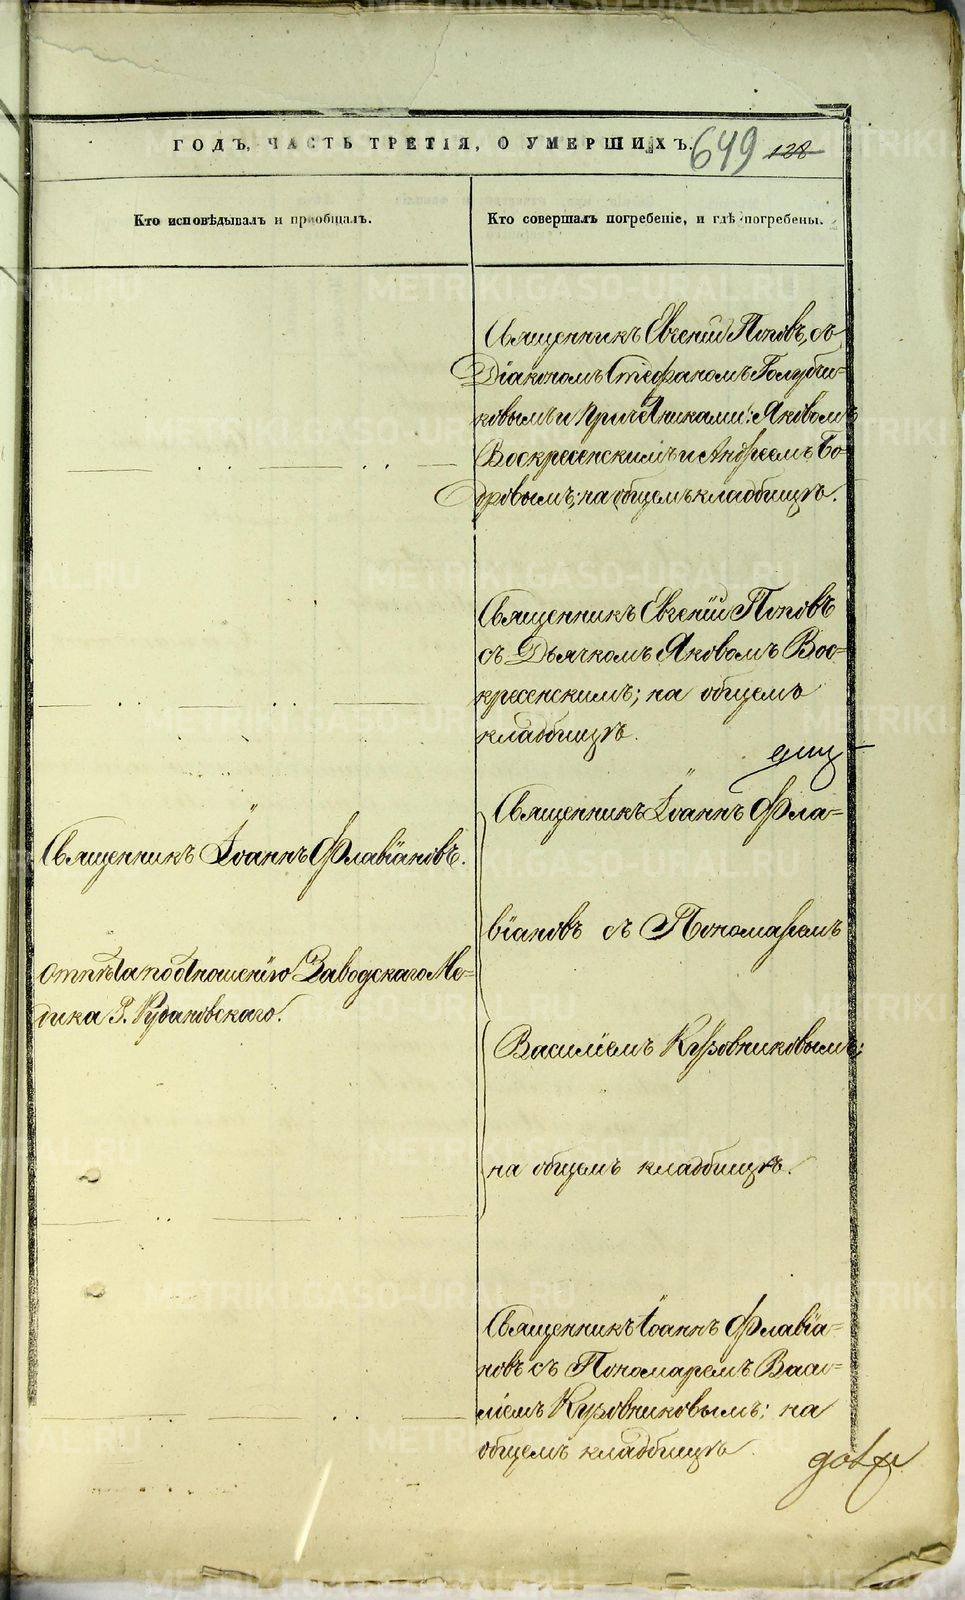 ГОДЪ, ЧАСТЬ ТРЕТІЯ, О УМЕРШИХЪ.
649 128
Кто исповѣдывалъ и пріобщалъ.
Кто совершалъ погребеніе, и гдѣ погребены.
Священникъ Евгеній Поповъ, съ
Діакономъ Стефаномъ Голубчи-
ковымъ и причетниками: Яковомъ
Воскресенскимъ и Андреемъ Бо-
дровымъ; на общемъ кладбищѣ.
Священникъ Евгеній Поповъ
съ Дьячкомъ Яковомъ Вос-
кресенскимъ; на общемъ
кладбищѣ.
Священникъ Іоаннъ Флавіановъ.
отпѣта по отношенію Заводскаго Ме-
дика Г.
Священникъ Іоаннъ Фла-
віановъ съ Пономаремъ
Василіемъ Кузовниковымъ;
на общемъ кладбищѣ.
Священникъ Іоаннъ Флавіа-
новъ съ Пономаремъ Васи-
ліемъ Кузовниковымъ; на
общемъ кладбищѣ
METRIKI.GASO-URAL.RU